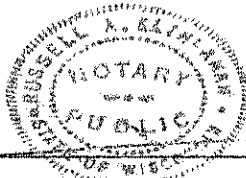 RUSSELL A.
NOTARY
PUBLIC
STATE OF WISCONSIN